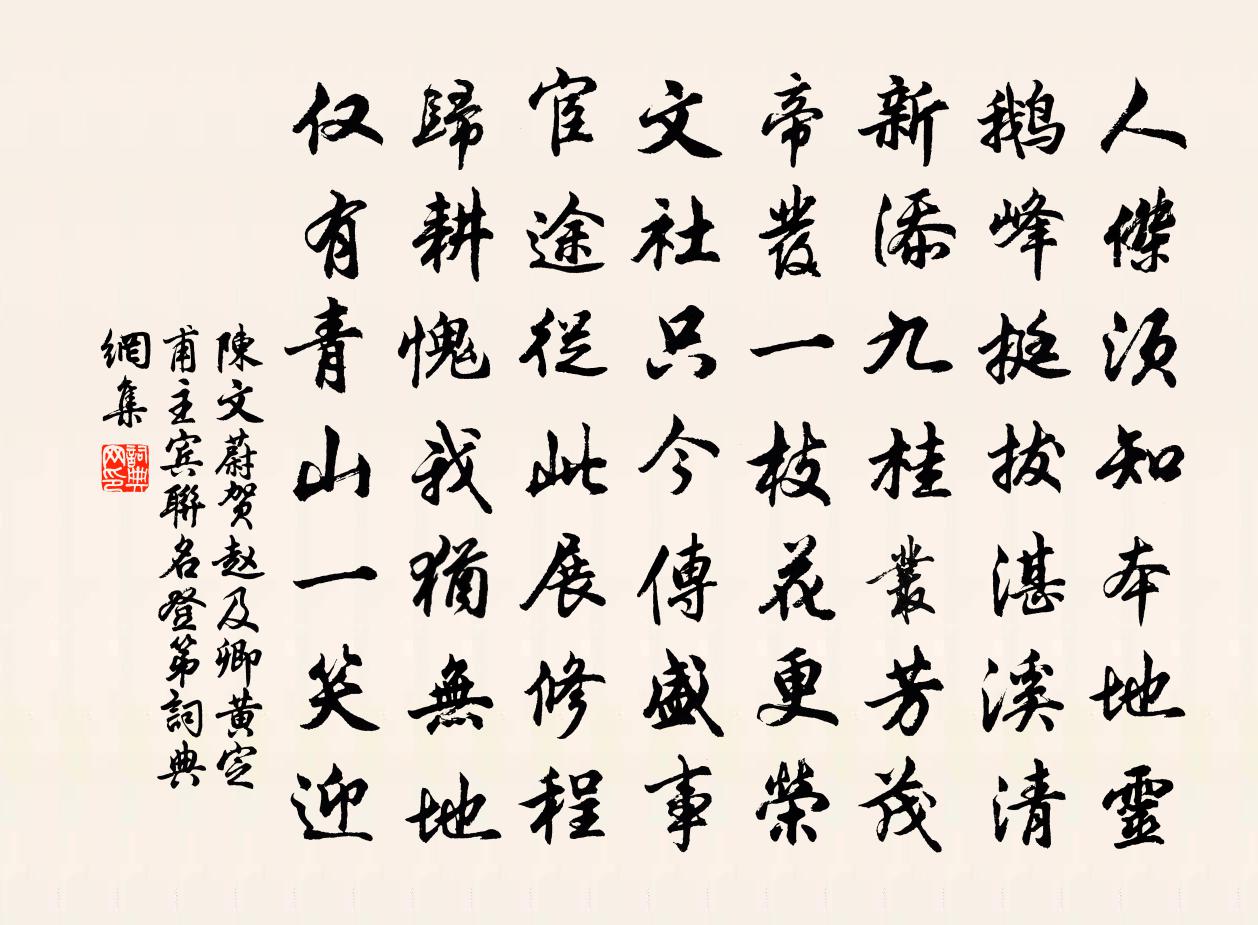 人傑須知本地靈
鵝峰挺拔湛溪清
新添九桂叢芳茂
帝發一枝花更榮
文社只今傳盛事
宦途從此展修程
歸耕愧我猶無地
仅有青山一笑迎
陳文蔚贺赵及卿黄定
甫主宾聯名登第詞典
網集
詞典网印